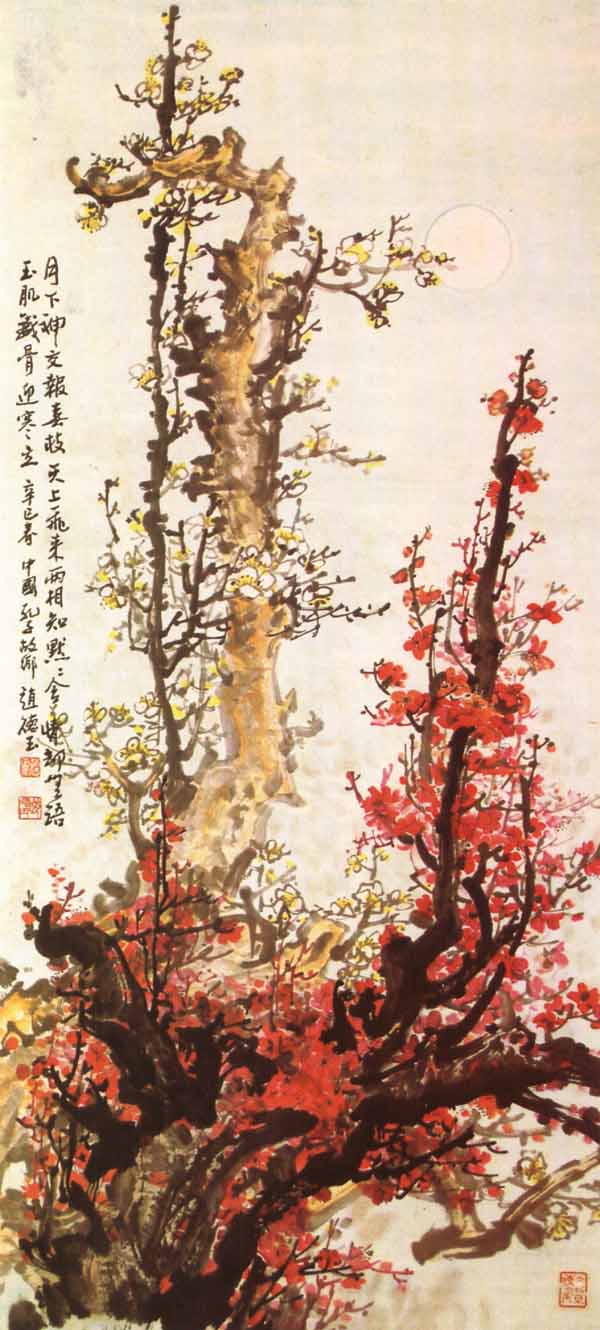 月下神交報喜枝天上飛來兩相知默〻含情無語
玉肌鐵骨迎寒立 辛巳春 中國孔子故鄉 趙德玉